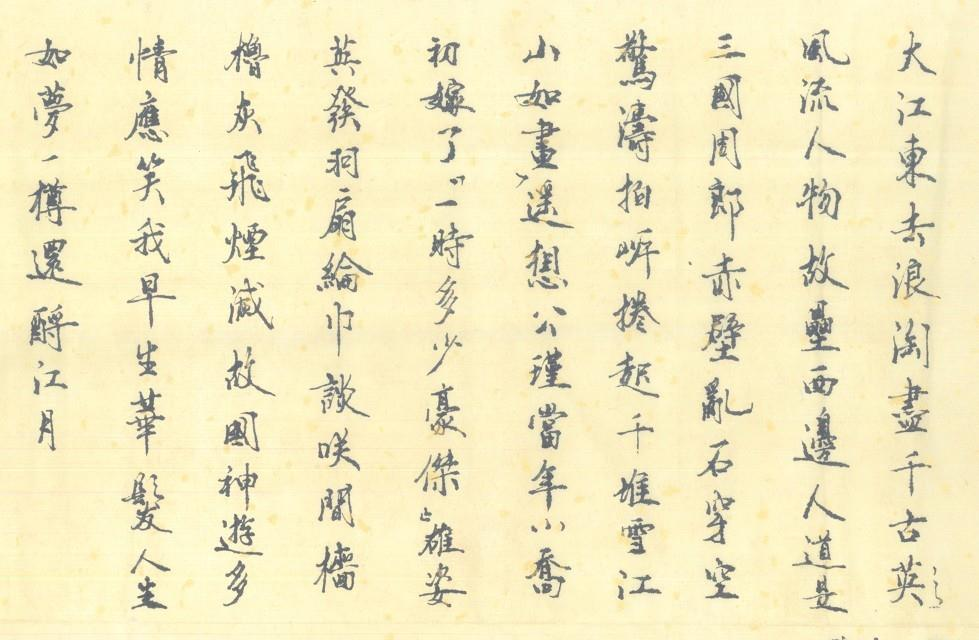 大江東去浪淘盡千古英
風流人物故壘西邊人道是
三國周郎赤壁亂石穿空
驚濤拍岸捲起千堆雪江
山如畫遥想公瑾當年小喬
初嫁了一時多少豪傑雄姿
英發羽扇綸巾談咲間檣
櫓灰飛煙滅故國神遊多
情應笑我早生華髮人生
如夢一樽還酹江月